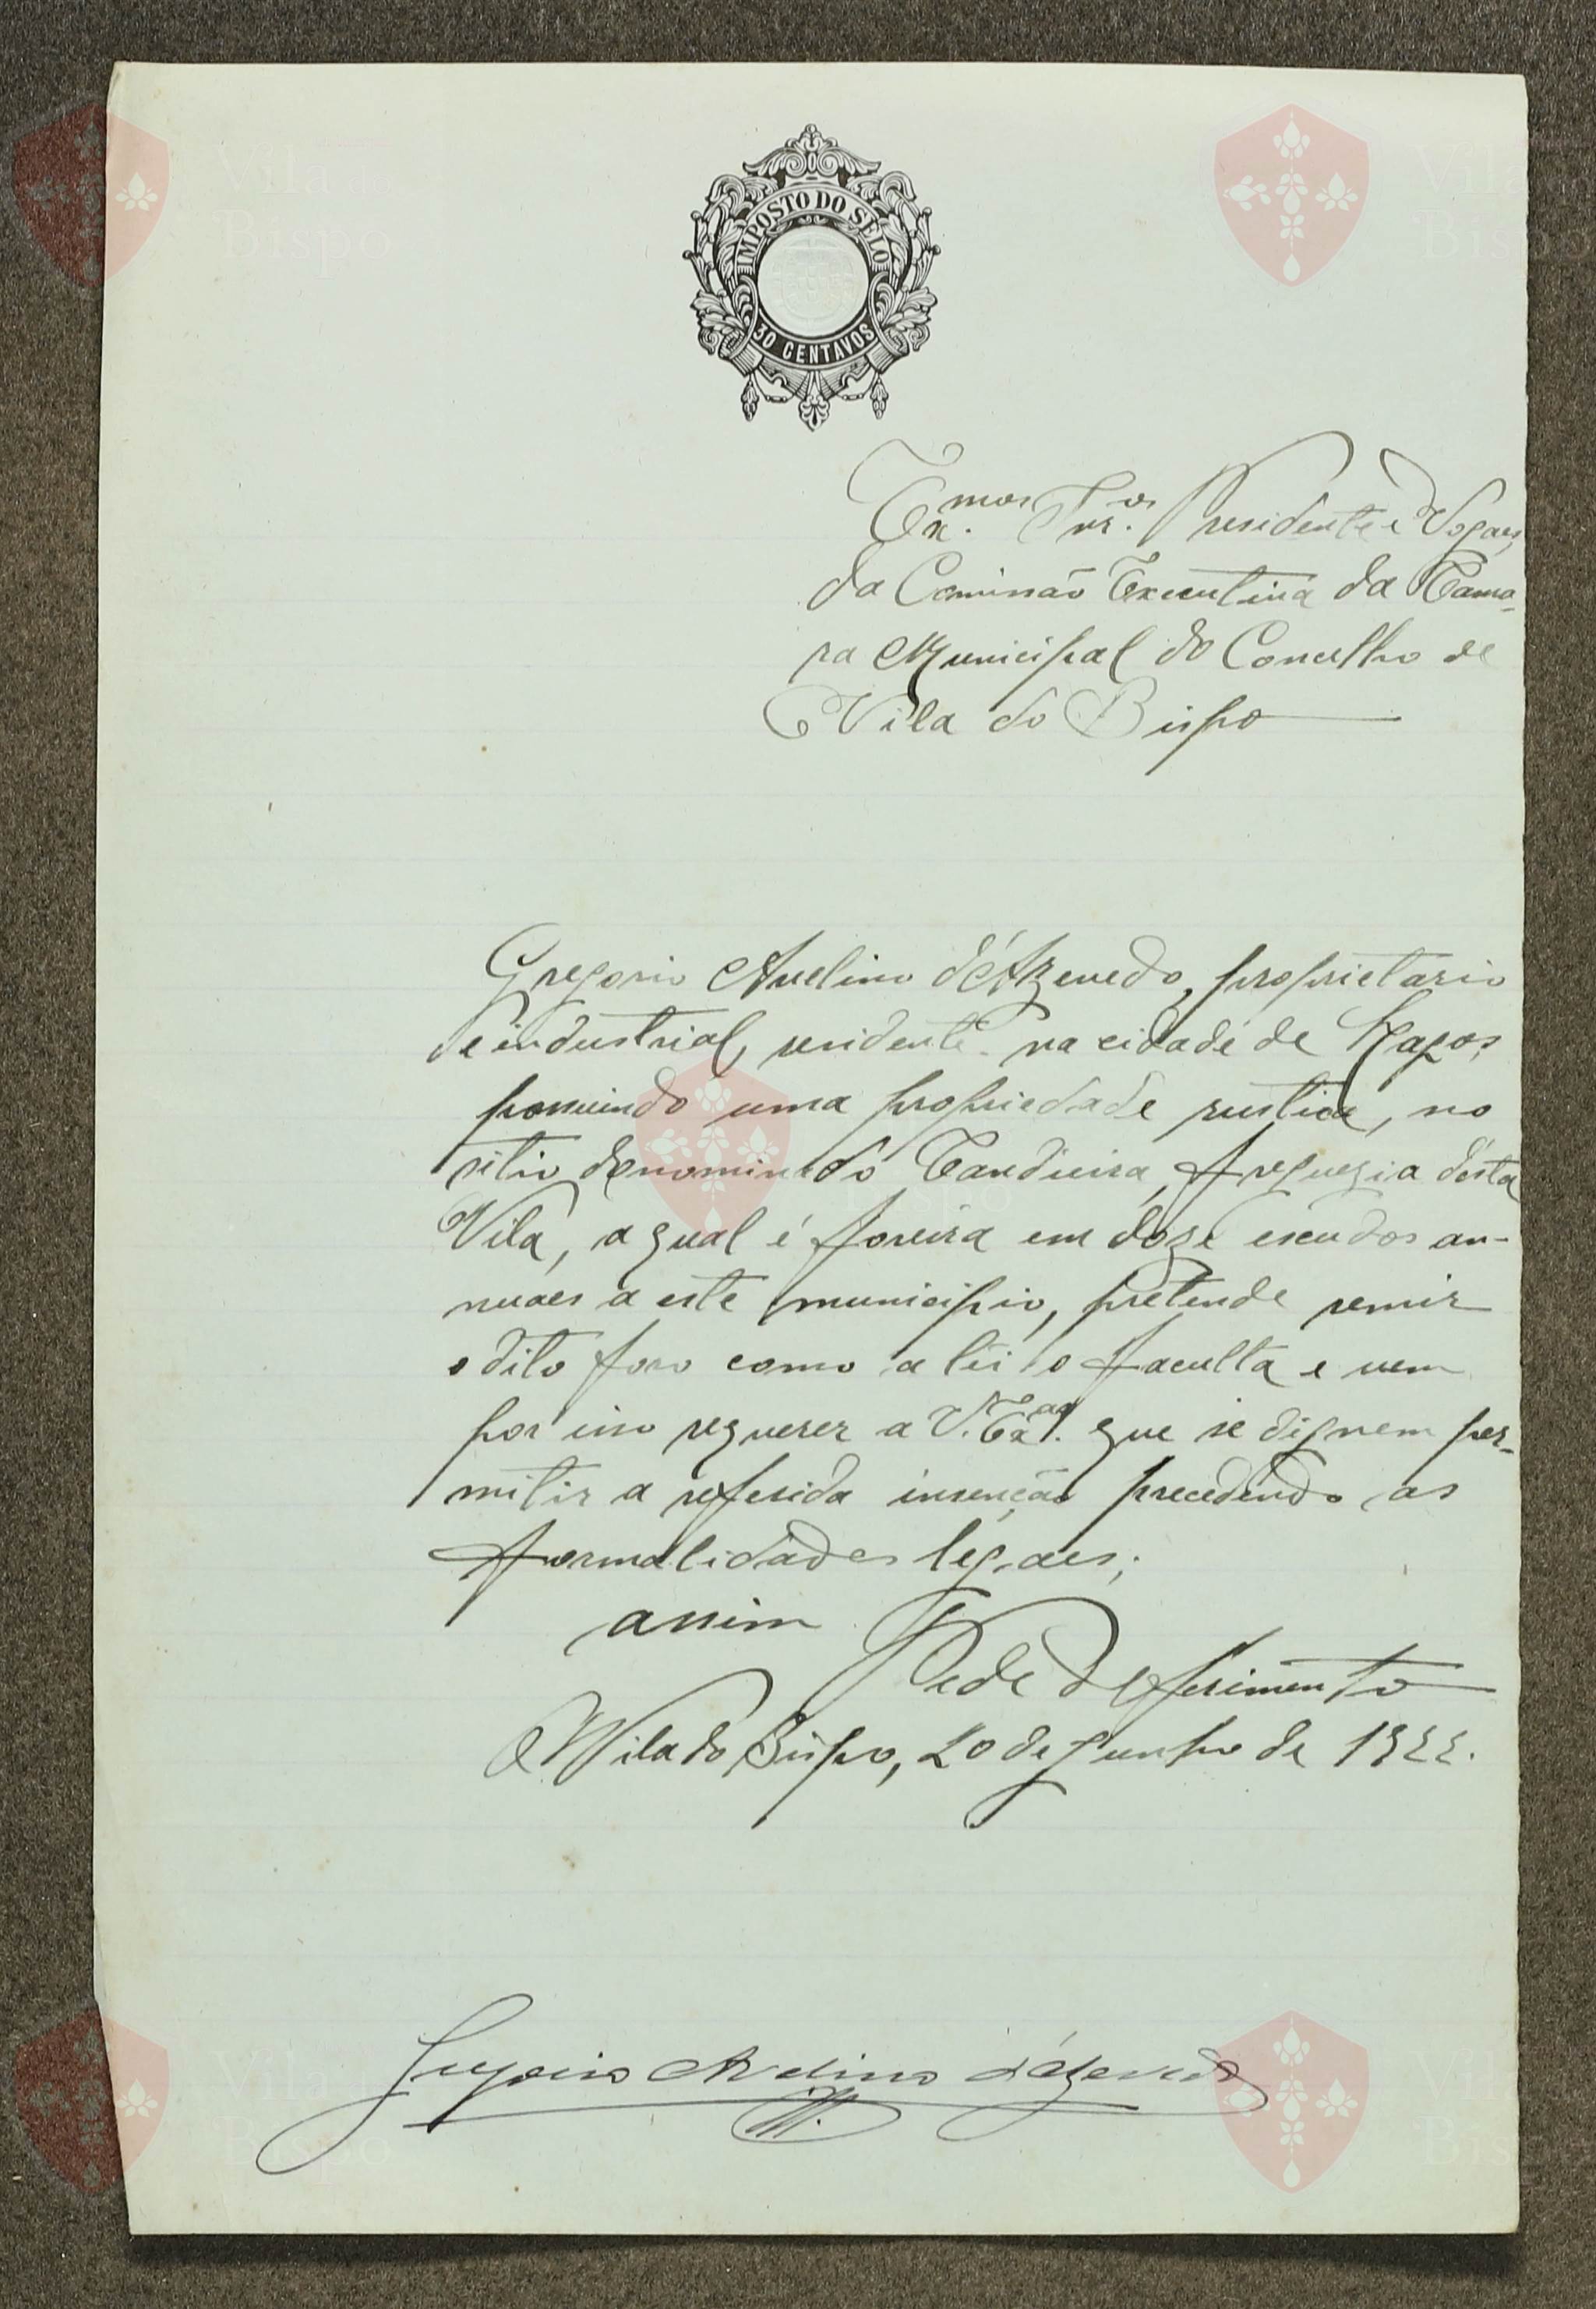 IMPOSTO DO SELO
30 CENTAVOS
Ex.mos Snr.os Presidente e Vogaes
da Comissão Executiva da Cama-
ra Municipal do Concelho de
Vila do Bispo
Gregorio Avelino d'Azevedo, proprietario
e industrial, residente na cidade de Lagos,
possuindo uma propriedade rustica, no
sitio denominado Candieira, freguezia désta
Vila, a qual é foreira em doze escudos an-
nuaes a este municipio, pretende remir
o dito foro como a lei o faculta e vem
por isso requerer a V. Ex.as que se dignem per-
mitir a referida insenção precedendo as
formalidades légaes;
assim
Pede defferimento
Vila do Bispo, 20 de Junho de 1922.
Gregorio Avelino d'Azevedo
Vila do
Bispo